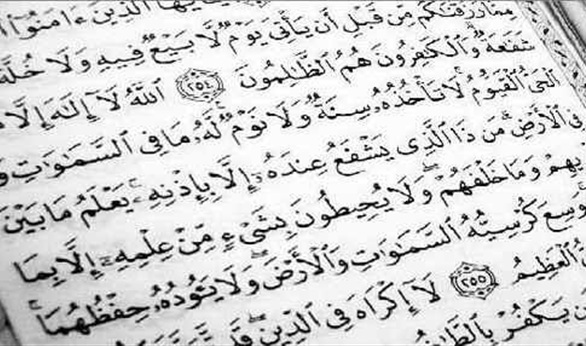 يَٰٓأَيُّهَا ٱلَّذِينَ ءَامَنُوٓا۟
مِمَّا رَزَقْنَٰكُم مِّن قَبْلِ أَن يَأْتِىَ يَوْمٌ لَّا بَيْعٌ فِيهِ وَلَا خُلَّةٌ
شَفَٰعَةٌ وَٱلْكَٰفِرُونَ هُمُ ٱلظَّٰلِمُونَ ٢٥٤ ٱللَّهُ لَآ إِلَٰهَ إِلَّا
ٱلْحَىُّ ٱلْقَيُّومُ لَا تَأْخُذُهُۥ سِنَةٌ وَلَا نَوْمٌ لَّهُۥ مَا فِى ٱلسَّمَٰوَٰتِ وَ
فِى ٱلْأَرْضِ مَن ذَا ٱلَّذِى يَشْفَعُ عِندَهُۥٓ إِلَّا بِإِذْنِهِۦ يَعْلَمُ مَا بَيْنَ
وَمَا خَلْفَهُمْ وَلَا يُحِيطُونَ بِشَىْءٍ مِّنْ عِلْمِهِۦٓ إِلَّا بِمَا
وَسِعَ كُرْسِيُّهُ ٱلسَّمَٰوَٰتِ وَٱلْأَرْضَ وَلَا يَـُٔودُهُۥ حِفْظُهُمَا
ٱلْعَظِيمُ ٢٥٥ لَآ إِكْرَاهَ فِى ٱلدِّينِ قَد تَّبَيَّنَ
يَكْفُرْ بِٱلطَّٰغُوتِ